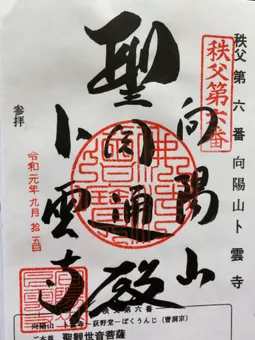 秩父第六番 向陽山卜雲寺
秩父第六番
向陽山
聖
円通
殿
卜雲寺
参拝
令和元年九月拾五日
秩父第六番
向陽山 卜雲寺~荻野堂~ぼくうんじ(曹洞宗)
ご本尊 聖観世音菩薩